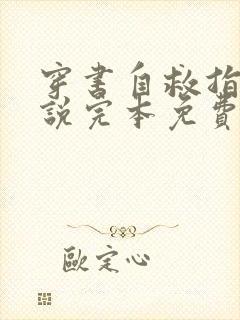 穿书自救指
說完本免費
歐定心